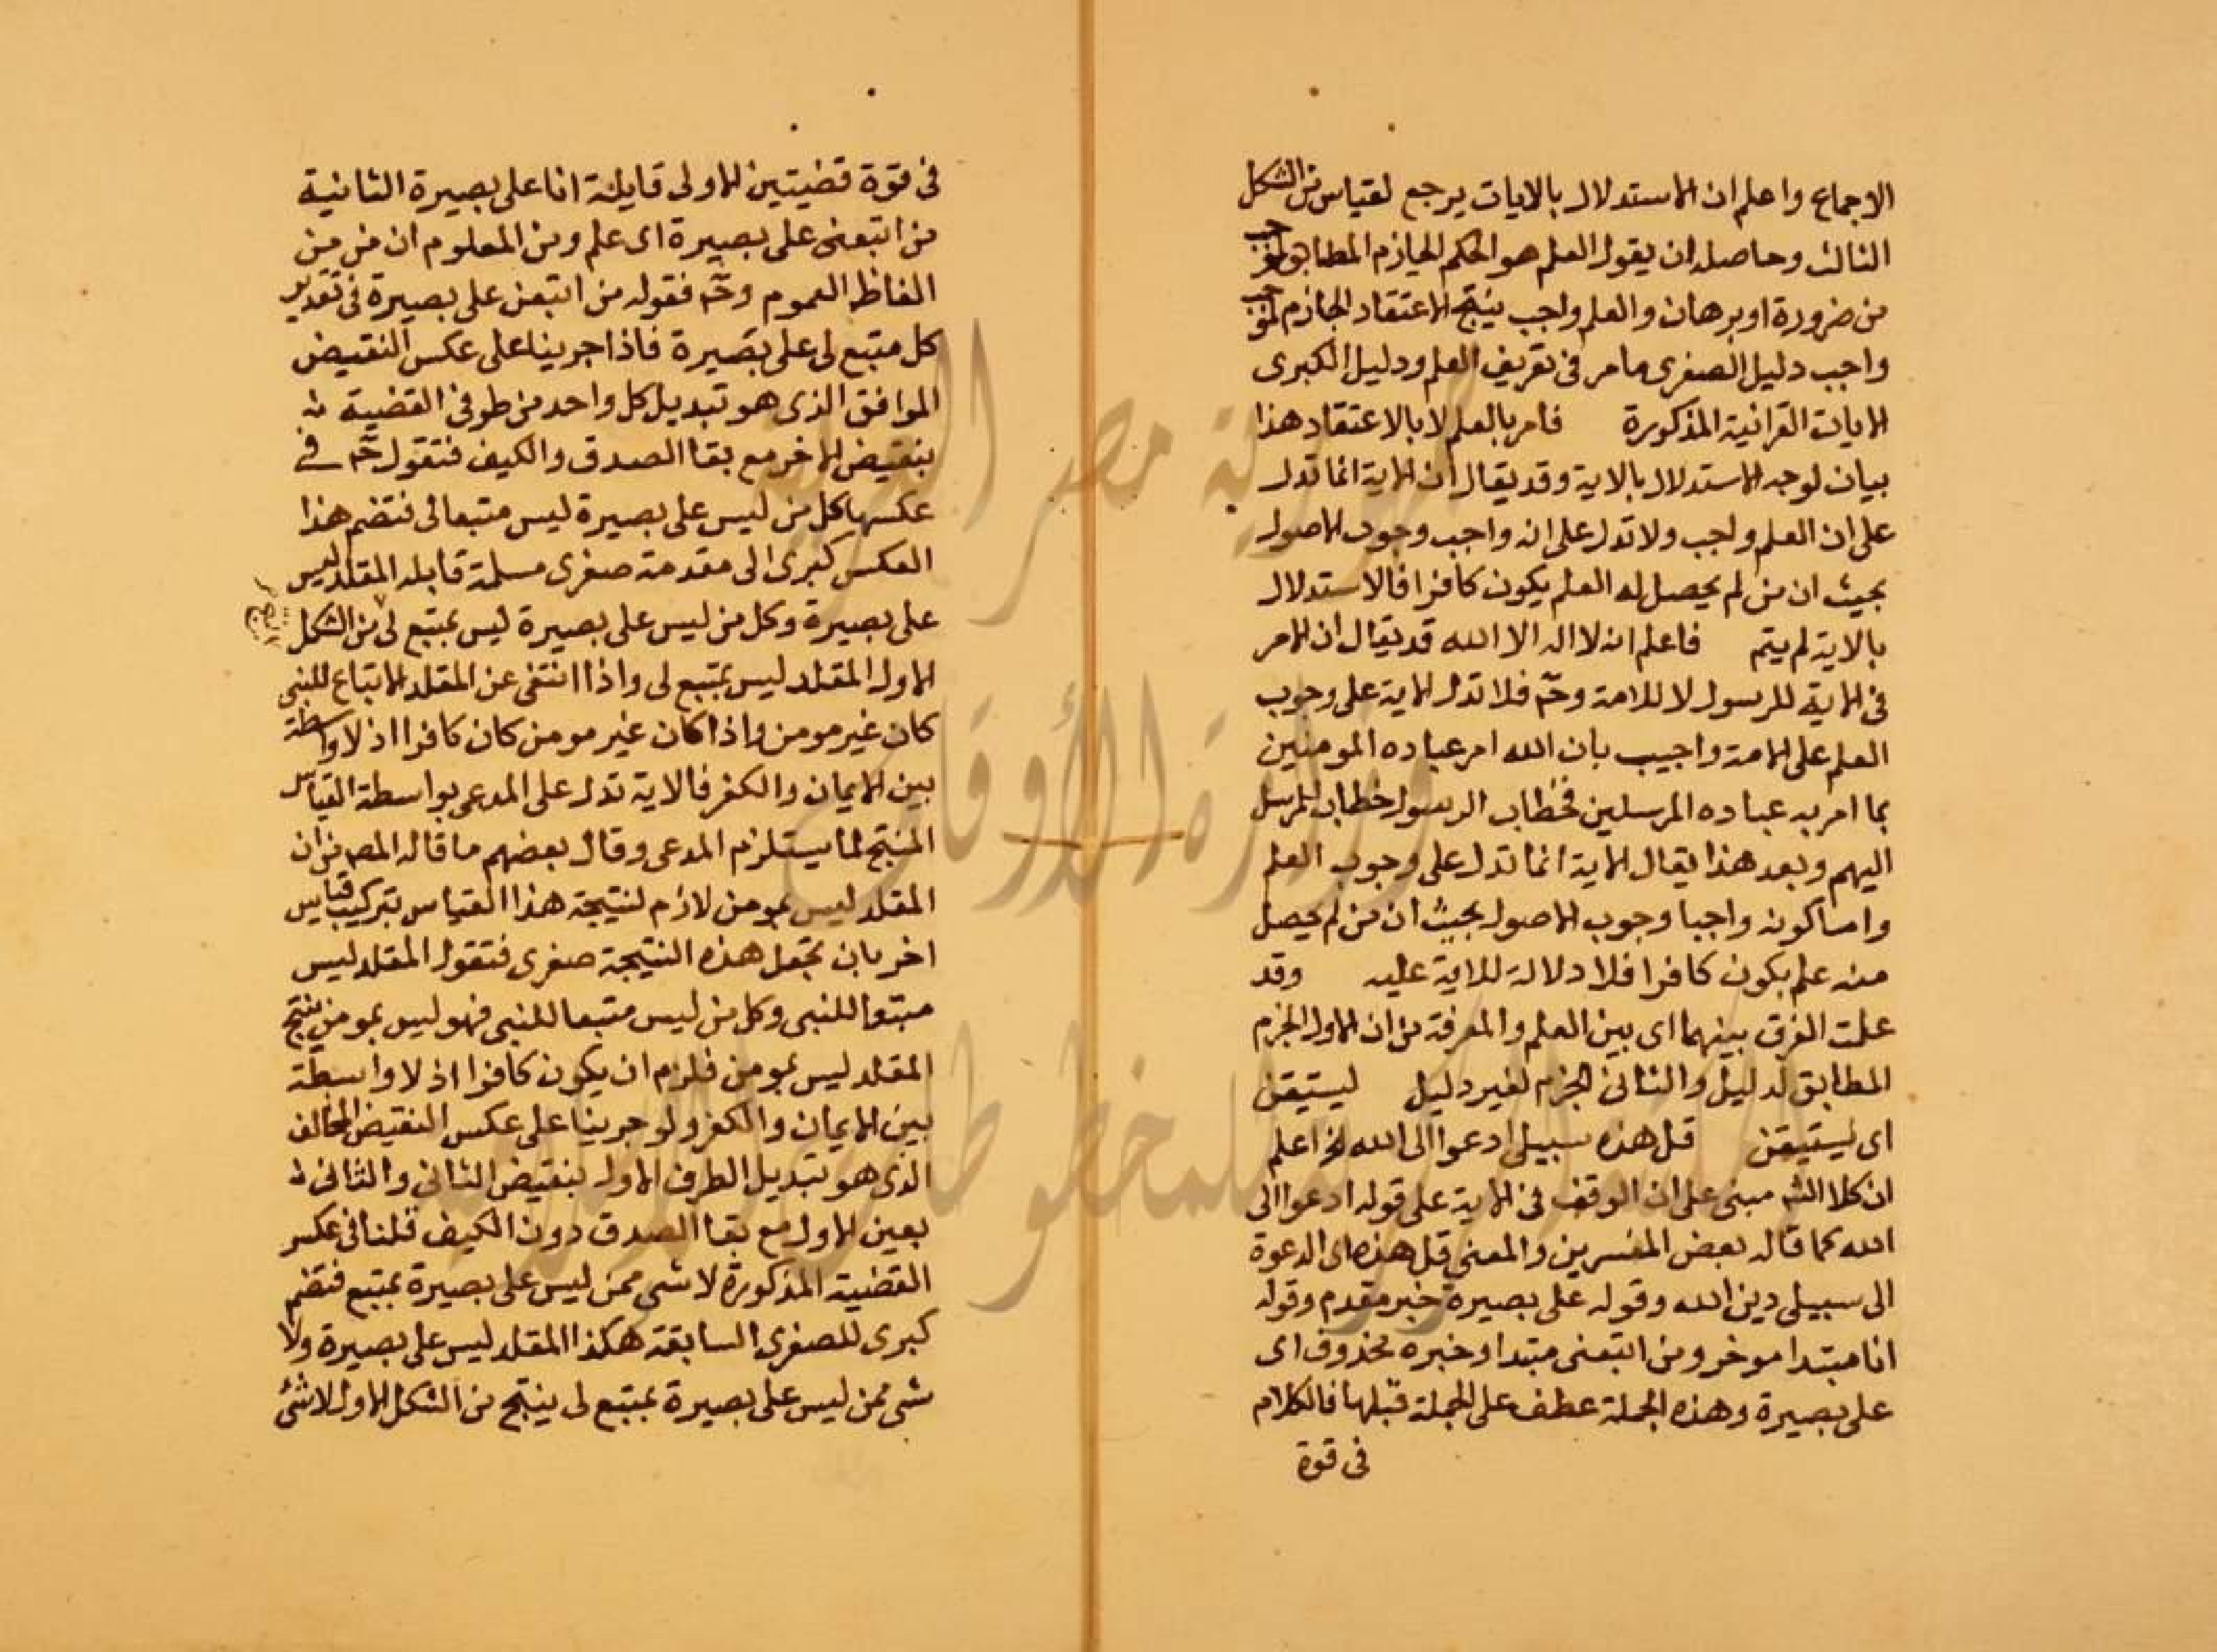 الاجماع واعلم ان الاستدلال بالايات يرجع لقياس من الشكل
الثالث وحاصله ان يقول العلم هو الحكم الجازم المطابق لموجب
من ضرورة او برهان والعلم واجب ينتج الاعتقاد الجازم لموجب
واجب دليل الصغرى ما مر فى تعريف العلم ودليل الكبرى
الايات القرانية المذكورة فامر بالعلم لا بالاعتقاد هذا
بيان لوجه الاستدلال بالاية وقد يقال ان الاية انما تدل
على ان العلم واجب ولا تدل على انه واجب وجوب الاصول
بحيث ان من لم يحصل له العلم يكون كافرا فالاستدلال
بالاية لم يتم فاعلم انه لا اله الا الله قد يقال ان الامر
فى الاية للرسول لا للامة وحّ فلا تدل الاية على وجوب
العلم على الامة واجيب بان الله امر عباده المومنين
بما امر به عباده المرسلين فخطاب الرسول خطاب للمرسل
اليهم وبعد هذا يقال الاية انما تدل على وجوب العلم
واما كونه واجبا وجوب الاصول بحيث ان من لم يحصل
منه علم يكون كافرا فلا دلالة للاية عليه وقد
علمت الفرق بينهما اى بين العلم والمعرفة من ان الاول الجزم
المطابق لدليل والثانى الجزم لغير دليل ليستيقن
اى ليستيقن قل هذه سبيلى ادعوا الى الله الخ اعلم
ان كلا الشـ مبنى على ان الوقف فى الاية على قوله ادعوا الى
الله كما قاله بعض المفسرين والمعنى قل هذه اى الدعوة
الى سبيلى دين الله وقوله على بصيرة خبر مقدم وقوله
انا مبتدا موخر ومن اتبعنى مبتدا وخبره محذوف اى
على بصيرة وهذه الجملة عطف على الجملة قبلها فالكلام
فى قوة
فى قوة قضيتين الاولى قايلة انا على بصيرة الثانية
من اتبعنى على بصيرة اى علم ومن المعلوم ان من من
الفاظ العموم وحّ فقوله من اتبعن على بصيرة فى تقدير
كل متبع لى على بصيرة فاذا جرينا على عكس النقيض
الموافق الذى هو تبديل كل واحد من طرفى القضية
بنقيض الاخر مع بقا الصدق والكيف فتقول حّ فى
عكسها كل من ليس على بصيرة ليس متبعا لى فتضم هذا
العكس كبرى الى مقدمة صغرى مسلمة قايله المقلد ليس
على بصيرة وكل من ليس على بصيرة ليس بمتبع لى من الشكل
الاول المقلد ليس بمتبع لى واذا انتفى عن المقلد الاتباع للنبى
كان غير مومن واذا كان غير مومن كان كافرا اذ لا واسطة
بين الايمان والكفر فالاية تدل على المدعى بواسطة القياس
المنتج لما يستلزم المدعى وقال بعضهم ما قاله المصـ من ان
المقلد ليس بمومن لازم لنتيجة هذا القياس بتركيب قياس
اخر بان تجعل هذه النتيجة صغرى فتقول المقلد ليس
متبعا للنبى وكل من ليس متبعا للنبى فهو ليس بمومن ينتج
المقلد ليس بمومن فلزم ان يكون كافرا اذ لا واسطة
بين الايمان والكفر ولو جرينا على عكس النقيض المخالف
الذى هو تبديل الطرف الاول بنقيض الثانى والثانى
بعين الاول مع بقا الصدق دون الكيف قلنا فى عكس
القضية المذكورة لا شى ممن ليس على بصيرة بمتبع فتضم
كبرى للصغرى السابقة هكذا المقلد ليس على بصيرة ولا
شى ممن ليس على بصيرة بمتبع لى ينتج من الشكل الاول لا شئ